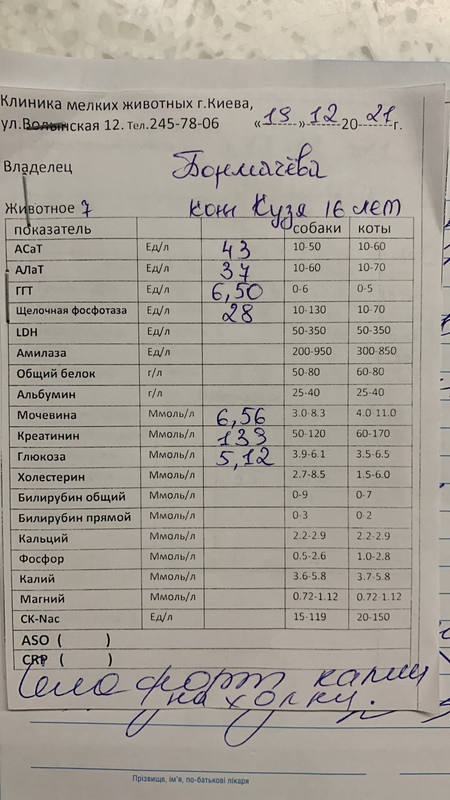 Клиника мелких животных г.Киева,
ул.Волынская 12. Тел.245-78-06 «19» 12 20 21 г.
Владелец Бормачёва
Животное 7 кот Кузя 16 лет
показатель собаки коты
АСаТ Ед/л 43 10-50 10-60
АЛаТ Ед/л 37 10-60 10-70
ГГТ Ед/л 6,50 0-6 0-5
Щелочная фосфотаза Ед/л 28 10-130 10-70
LDH Ед/л 50-350 50-350
Амилаза Ед/л 200-950 300-850
Общий белок г/л 50-80 60-80
Альбумин г/л 25-40 25-40
Мочевина Ммоль/л 6,56 3.0-8.3 4.0-11.0
Креатинин Ммоль/л 139 50-120 60-170
Глюкоза Ммоль/л 5,12 3.9-6.1 3.5-6.5
Холестерин Ммоль/л 2.7-8.5 1.5-6.0
Билирубин общий Ммоль/л 0-9 0-7
Билирубин прямой Ммоль/л 0-3 0-2
Кальций Ммоль/л 2.2-2.9 2.2-2.9
Фосфор Ммоль/л 0.5-2.6 1.0-2.8
Калий Ммоль/л 3.6-5.8 3.7-5.8
Магний Ммоль/л 0.72-1.12 0.72-1.12
CK-Nac Ед/л 15-119 20-150
ASO ( )
CRP ( )
форт капли
на холку.
Прізвище, ім'я, по-батькові лікаря